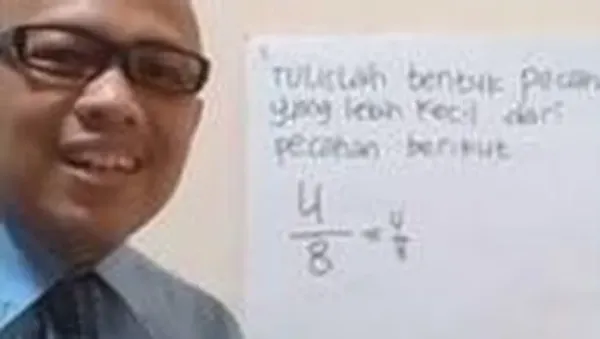 Tulislah bentuk pecahan
yang lebih kecil dari
pecahan berikut
4/8 = 4/8